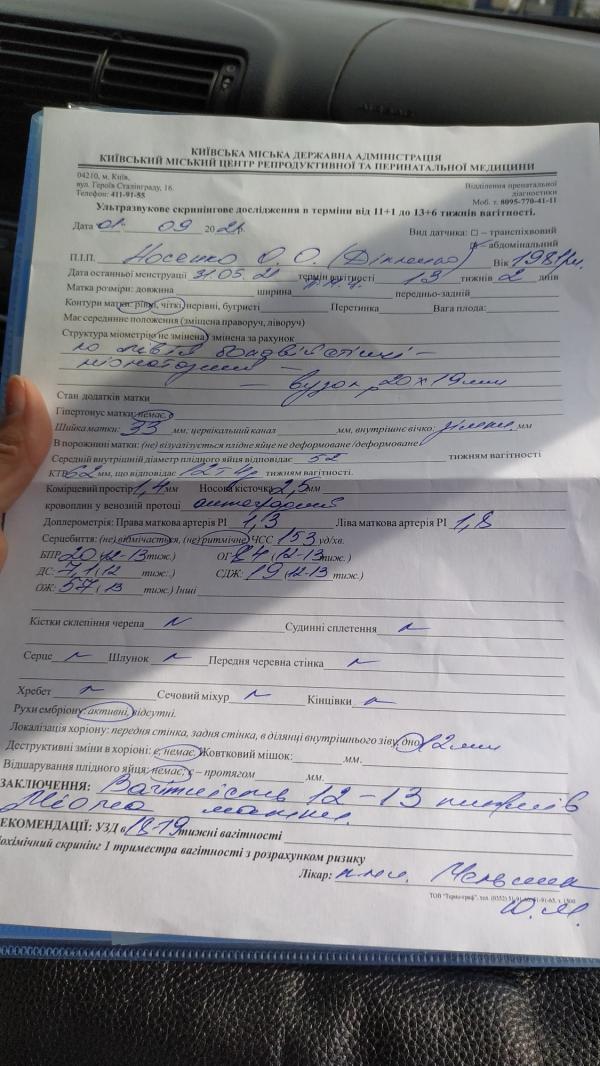 КИЇВСЬКА МІСЬКА ДЕРЖАВНА АДМІНІСТРАЦІЯ
КИЇВСЬКИЙ МІСЬКИЙ ЦЕНТР РЕПРОДУКТИВНОЇ ТА ПЕРИНАТАЛЬНОЇ МЕДИЦИНИ
04210, м. Київ,
вул. Героїв Сталінграду, 16.
Телефон: 411-91-55
Відділення пренатальної
діагностики
Моб. т. 8095-770-41-11
Ультразвукове скринингове дослідження в терміни від 11+1 до 13+6 тижнів вагітності.
Дата 01. 09 2021. Вид датчика: □ – трансвхповий
абдомінальний
П.І.П. Носенко О. О. Вік 1981р.
Дата останньої менструації 31.05.21 термін вагітності 13 тижнів 2 днів
Матка розміри: довжина ширина передньо-задній
Контури матки: рівні, чіткі, нерівні, бугристі Перетинка Вага плода:
Має серединне положення (зміщена праворуч, ліворуч)
Структура міометрію не змінена, змінена за рахунок
по
– вузол 20х19мм
Стан додатків матки
Гіпертонус матки: немає, є
Шийка матки: 33 мм, цервікальний канал мм, внутрішнє вічко: мм
В порожнині матки: (не) візуалізується плідне яйце не деформоване /деформоване
Середній внутрішній діаметр плідного яйця відповідає 52 тижням вагітності
КТР 62 мм, що відповідає 12т 4д тижням вагітності.
Комірцевий простір 1,4 мм Носова кісточка 2,5 мм
кровоплин у венозній протоці антеградний
Доплерометрія: Права маткова артерія РІ 1,3 Ліва маткова артерія РІ 1,8
Серцебиття: (не) відмічається, (не) ритмічне, ЧСС 153 уд/хв.
БПР: 20 (12-13 тиж.) ОГ: (12-13 тиж.)
ДС: 7,1 (12 тиж.) СДЖ: 19 (12-13 тиж.)
ОЖ: 57 (13 тиж.) Інші
Кістки склепіння черепа N Судинні сплетення
Серце Шлунок Передня черевна стінка
Хребет Сечовий міхур Кінцівки
Рухи ембріону: активні, відсутні.
Локалізація хоріону: передня стінка, задня стінка, в ділянці внутрішнього зіву, дно 12мм
Деструктивні зміни в хоріоні: є, немає. Жовтковий мішок: мм.
Відшарування плідного яйця: немає, є – протягом мм.
ЗАКЛЮЧЕННЯ: Вагітність 12-13 тижнів
Міома матки.
РЕКОМЕНДАЦІЇ: УЗД в 18-19 тижні вагітності
біохімічний скринінг 1 триместра вагітності з розрахунком ризику
Лікар:
Ю.М.